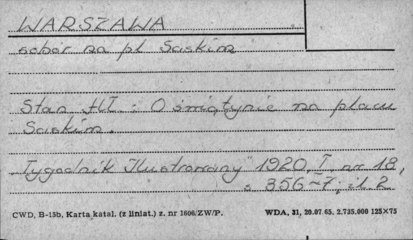 WARSZAWA
sobór na pl Saskim
Stan Hł.: O świątynię na placu
Saskim.
Tygodnik Ilustrowany 1920, I nr 18,
s 356-7, il. 2
CWD, B-15b, Karta katal. (z liniat.) z. nr 1606/ZW/P. WDA, 21, 20.07.65. 2.735.000 125×75